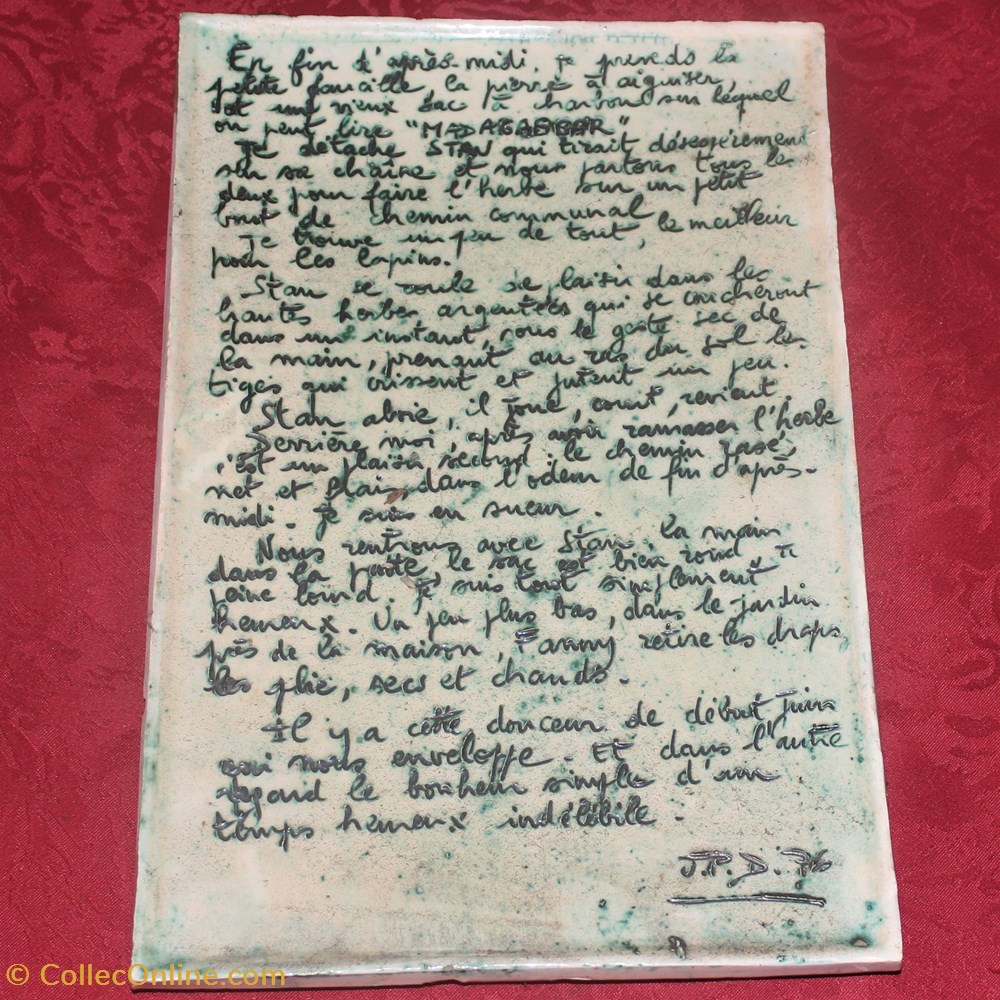 En fin d'après-midi, je prends la
petite faucille, la pierre à aiguiser,
et un vieux sac à charbon sur lequel
on peut lire "MADAGASCAR"
Je détache STAN qui tirait désespérément
sur sa chaîne et nous partons tous les
deux pour faire l'herbe sur un petit
bout de chemin communal
Je trouve un peu de tout, le meilleur
pour les lapins.
Stan se roule de plaisir dans les
hautes herbes argentées qui se coucheront
dans un instant, sous le geste sec de
la main, prenant au ras du sol les
tiges qui crissent et jutent un peu.
Stan aboie, il joue, court, revient.
Derrière moi, après avoir ramasser l'herbe
c'est un plaisir second : le chemin rasé,
net et plais, dans l'odeur de fin d'après-
midi. Je suis en sueur.
Nous rentrons avec Stan, la main
dans la poche, le sac est bien rond à
peine lourd. Je suis tout simplement
heureux. Un peu plus bas, dans le jardin
près de la maison, Fanny retire les draps,
les plie, secs et chauds.
Il y a cette douceur de début juin
qui nous enveloppe. Et dans l'autre
regard le bonheur simple d'un
temps heureux indélébile.
J.P.D. 76
© CollecOnline.com